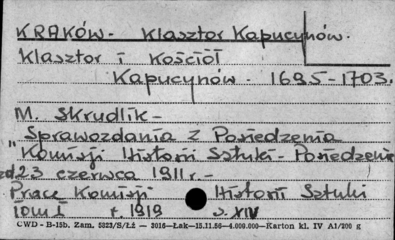 KRAKÓW - Klasztor Kapucynów.
Klasztor i Kościół
Kapucynów - 1695-1703.
M. Skrudlik -
Sprawozdania z Posiedzenia
"Komisji Historii Sztuki - Posiedzenie
23 czerwca 1911 r. -
Prace Komisji Historii Sztuki
tom I r. 1919 s. XIV
CWD - B-15b. Zam. 5023/S/Łż — 3016—Łak—15.11.56—4.000.000—Karton kl. IV A1/200 g